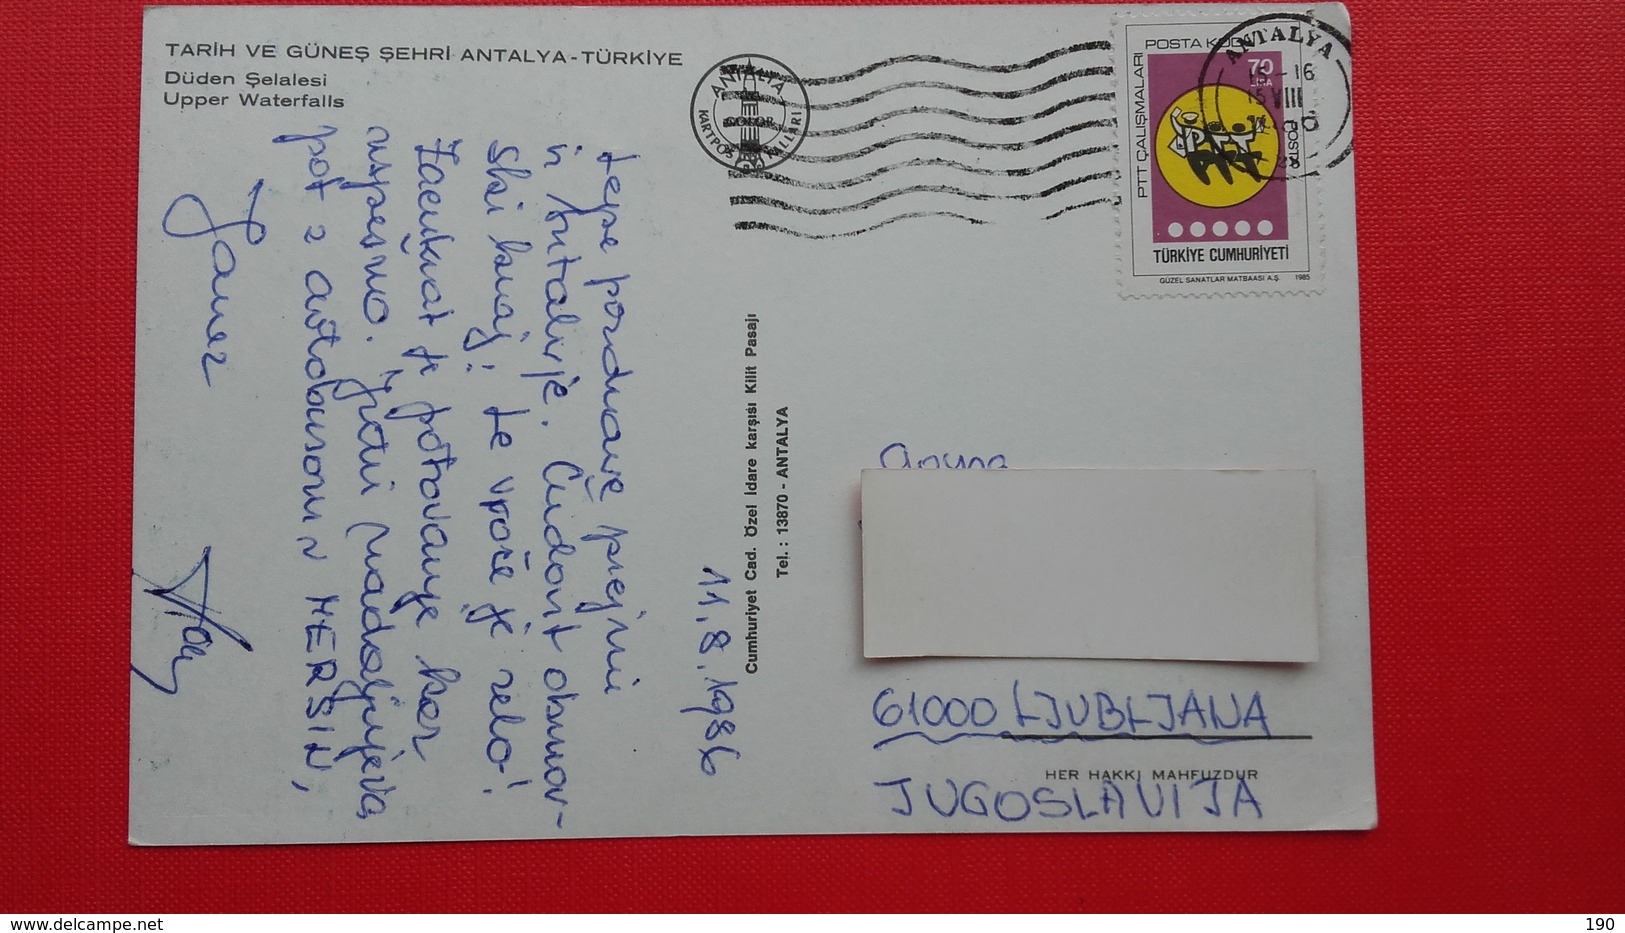 TARİH VE GÜNEŞ ŞEHRİ ANTALYA - TÜRKİYE
Düden Şelalesi
Upper Waterfalls
ANTALYA
COLOR
KARTPOSTALLARI
Lepe pozdrave prejmi
iz Antalije. Čudovit obmor-
ski kraj! Le vroče je zelo!
Zaenkrat je potovanje kar
uspešno. Jutri nadaljujeva
pot z avtobusom v MERSIN,
Janez
11.8.1986
Cumhuriyet Cad. Özel İdare karşısı Kilit Pasajı
Tel.: 13870 - ANTALYA
POSTA KODU
70
LİRA
PTT ÇALIŞMALARI
TÜRKİYE CUMHURİYETİ
GÜZEL SANATLAR MATBAASI A.Ş. 1985
ANTALYA
-16
VIII
61000 LJUBLJANA
HER HAKKI MAHFUZDUR
JUGOSLAVIJA
190